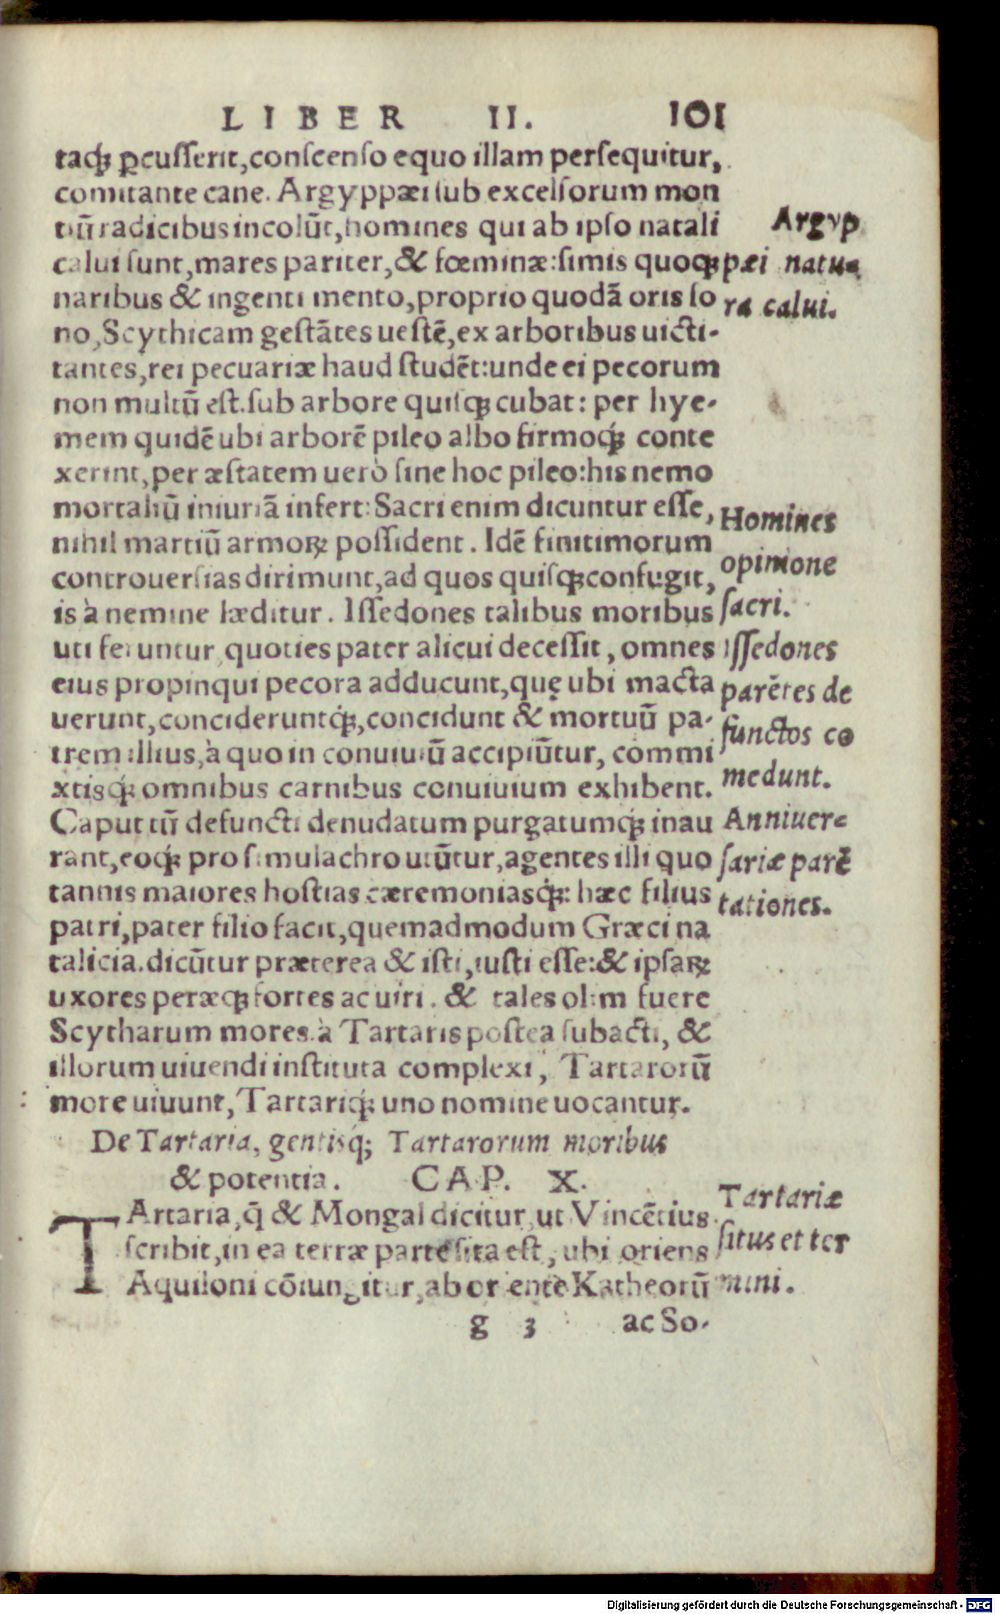 LIBER II. 101
taq́ꝫ ꝑcusserit, conscenso equo illam persequitur,
comitante cane. Argyppæi sub excelsorum mon
tiũ radicibus incolũt, homines qui ab ipso natali
calui sunt, mares pariter, & fœminæ: simis quoqꝫ
naribus & ingenti mento, proprio quodã oris so
no, Scythicam gestãtes uestẽ, ex arboribus uicti-
tantes, rei pecuariæ haud studẽt: unde ei pecorum
non multũ est. sub arbore quisqꝫ cubat: per hye-
mem quidẽ ubi arborẽ pileo albo firmoq́ꝫ conte
xerint, per æstatem uerò sine hoc pileo: his nemo
mortaliũ iniuriã infert: Sacri enim dicuntur esse,
nihil martiũ armoꝝ possident. Idẽ finitimorum
controuersias dirimunt, ad quos quisqꝫ confugit,
is à nemine læditur. Issedones talibus moribus
uti feruntur, quoties pater alicui decessit, omnes
eius propinqui pecora adducunt, quę ubi macta
uerunt, concideruntq́ꝫ, concidunt & mortuũ pa-
trem illius, à quo in conuiuiũ accipiũtur, commi
xtisq́ꝫ omnibus carnibus conuiuium exhibent.
Caput tũ defuncti denudatum purgatumq́ꝫ inau
rant, eoq́ꝫ pro simulachro utũtur, agentes illi quo
tannis maiores hostias cæremoniasq́ꝫ: hæc filius
patri, pater filio facit, quemadmodum Græci na
talicia. dicũtur præterea & isti, iusti esse: & ipsaꝝ
uxores peræqꝫ fortes ac uiri. & tales olim fuere
Scytharum mores. à Tartaris postea subacti, &
illorum uiuendi instituta complexi, Tartarorũ
more uiuunt, Tartariq́ꝫ uno nomine uocantur.
De Tartaria, gentisq́; Tartarorum moribus
& potentia. CAP. X.
TArtaria, q̃ & Mongal dicitur, ut Vincẽtius
scribit, in ea terræ parte sita est, ubi oriens
Aquiloni cõiungitur, ab oriente Katheorũ
g 3 ac So-
Argyp
pæi natu-
ra calui.
Homines
opinione
sacri.
Issedones
parẽtes de
functos co
medunt.
Anniuer-
sariæ parẽ
tationes.
Tartariæ
situs et ter
mini.
Digitalisierung gefördert durch die Deutsche Forschungsgemeinschaft - DFG